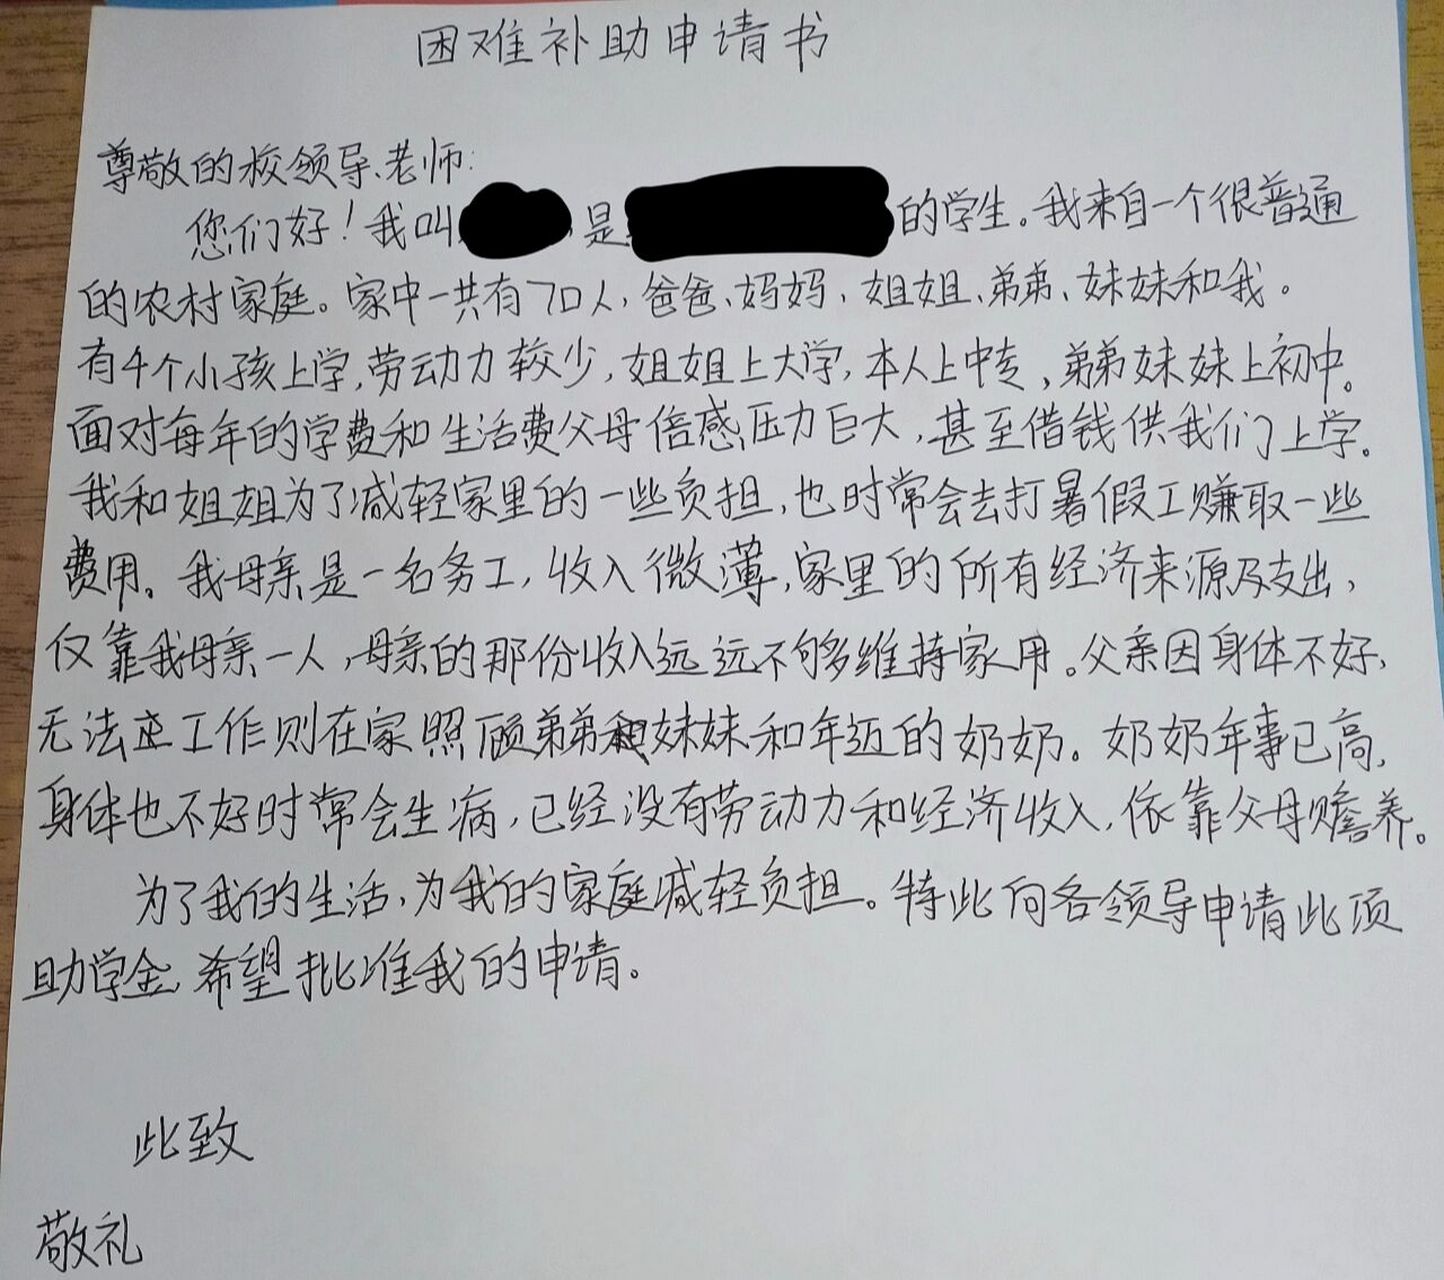 困难补助申请书
尊敬的校领导、老师:
您们好!我叫 是 的学生。我来自一个很普通
的农村家庭。家中一共有7口人,爸爸、妈妈、姐姐、弟弟、妹妹和我。
有4个小孩上学,劳动力较少,姐姐上大学,本人上中专,弟弟妹妹上初中。
面对每年的学费和生活费父母倍感压力巨大,甚至借钱供我们上学。
我和姐姐为了减轻家里的一些负担,也时常会去打暑假工赚取一些
费用。我母亲是一名务工,收入微薄,家里的所有经济来源及支出,
仅靠我母亲一人,母亲的那份收入远远不够维持家用。父亲因身体不好,
无法正工作则在家照顾弟弟和妹妹和年近的奶奶。奶奶年事已高,
身体也不好时常会生病,已经没有劳动力和经济收入,依靠父母赡养。
为了我的生活,为我的家庭减轻负担。特此向各领导申请此项
助学金,希望批准我的申请。
此致
敬礼